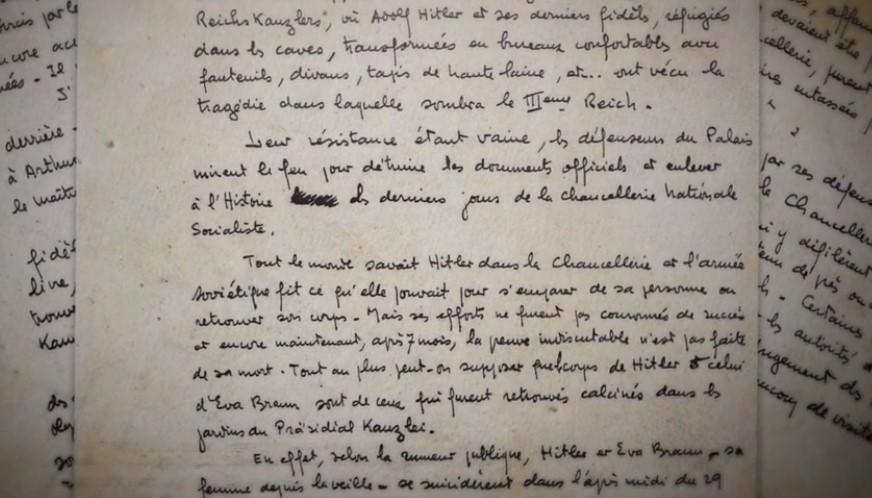 Reichskanzlers, où Adolf Hitler et ses derniers fidèls, réfugiés
dans ls caves, transformées en bureaux confortables avec
fauteuils, divans, tapis de haute laine, et... ont vécu la
tragédie dans laquelle sombra le IIIeme Reich.
Leur résistance étant vaine, ls défenseurs du Palais
mirent le feu pour détruire les documents officiels et enlever
à l'Histoire ls derniers jours de la Chancellerie Nationale
Socialiste.
Tout le monde savait Hitler dans la Chancellerie et l'armée
soviétique fit ce qu'elle pouvait pour s'emparer de sa personne ou
retrouver son corps. Mais ses efforts ne furent pas couronnés de succès
et encore maintenant, après 7 mois, la preuve indiscutable n'est pas faite
de sa mort. Tout au plus peut-on supposer que corps de Hitler et celui
d'Eva Braun sont de ceux qui furent retrouvés calcinés dans ls
jardins du Präsidial Kanzlei.
En effet, selon la rumeur publique, Hitler et Eva Braun - sa
femme depuis la veille - se suicidèrent dans l'après midi du 29
derrière -
à Arthur
le maît
fidèl
live,
trouv
Kan
devaient être
cellerie, furent
entassées
par ses défens
la Chanceller
y défilèrent
de près ou
Certains
ls autorité
ngement ds
ucoup de visite